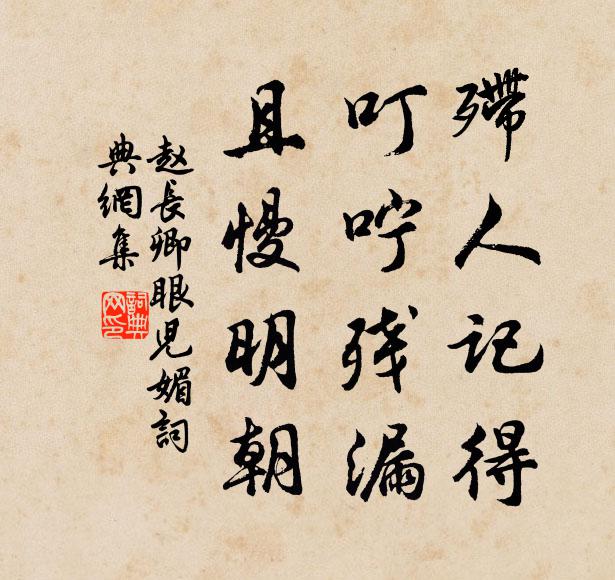 殢人记得
叮咛残漏
且慢明朝
赵長卿眼児媚詞
典網集
詞典
网印